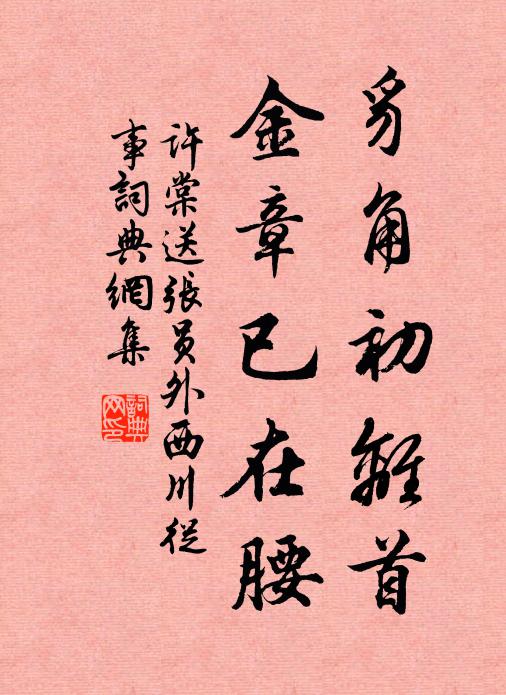 豸角初離首
金章已在腰
許棠送張員外西川從
事詞典網集
詞典
网印